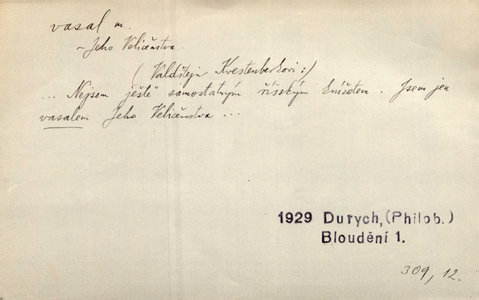 vasal m.
~ Jeho Veličenstva.
(Valdštejn Kvestenberkovi:)
... Nejsem ještě samostatným říšským knížetem. Jsem jen
vasalem Jeho Veličenstva ...
1929 Durych, (Philob.)
Bloudění 1.
309, 12.